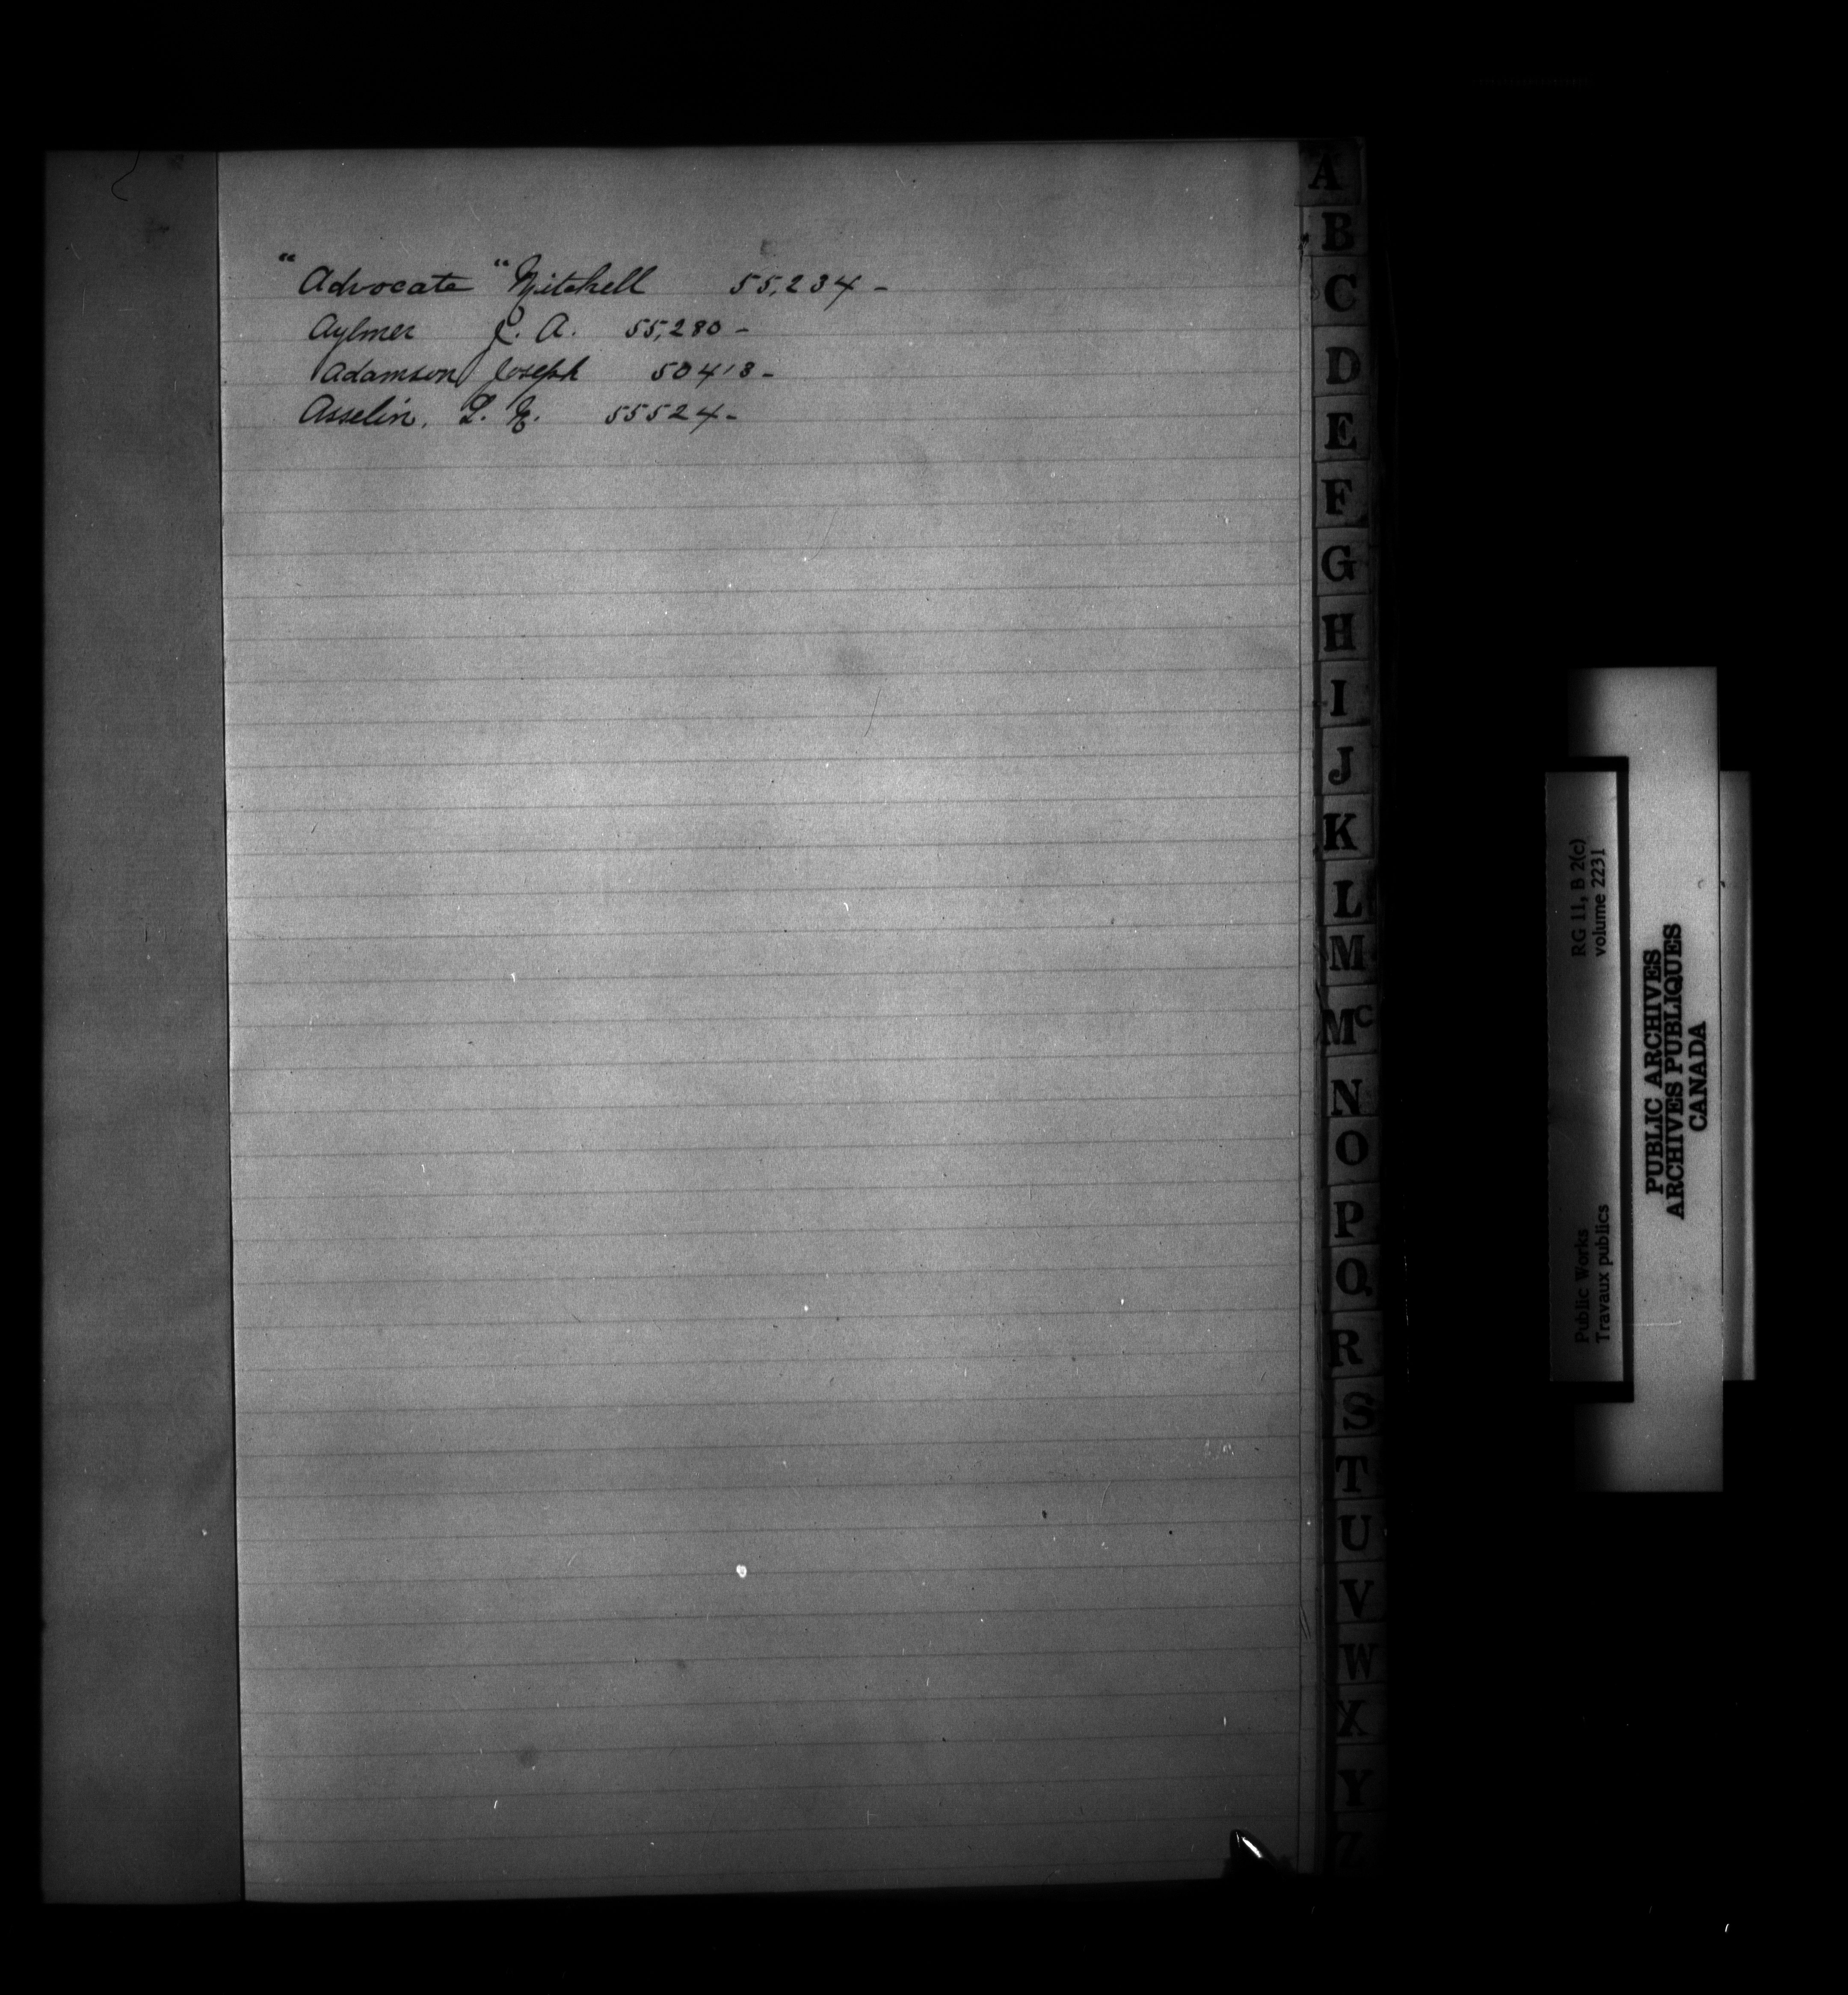 "Advocate" Mitchell 55,234 -
Aylmer J. A. 55,280 -
Adamson Joseph 50418 -
Asselin, L. N. 55524 -
A
B
C
D
E
F
G
H
I
J
K
L
M
Mc
N
O
P
Q
R
S
T
U
V
W
X
Y
Z
Public Works RG 11, B 2(c)
Travaux publics volume 2231
PUBLIC ARCHIVES
ARCHIVES PUBLIQUES
CANADA